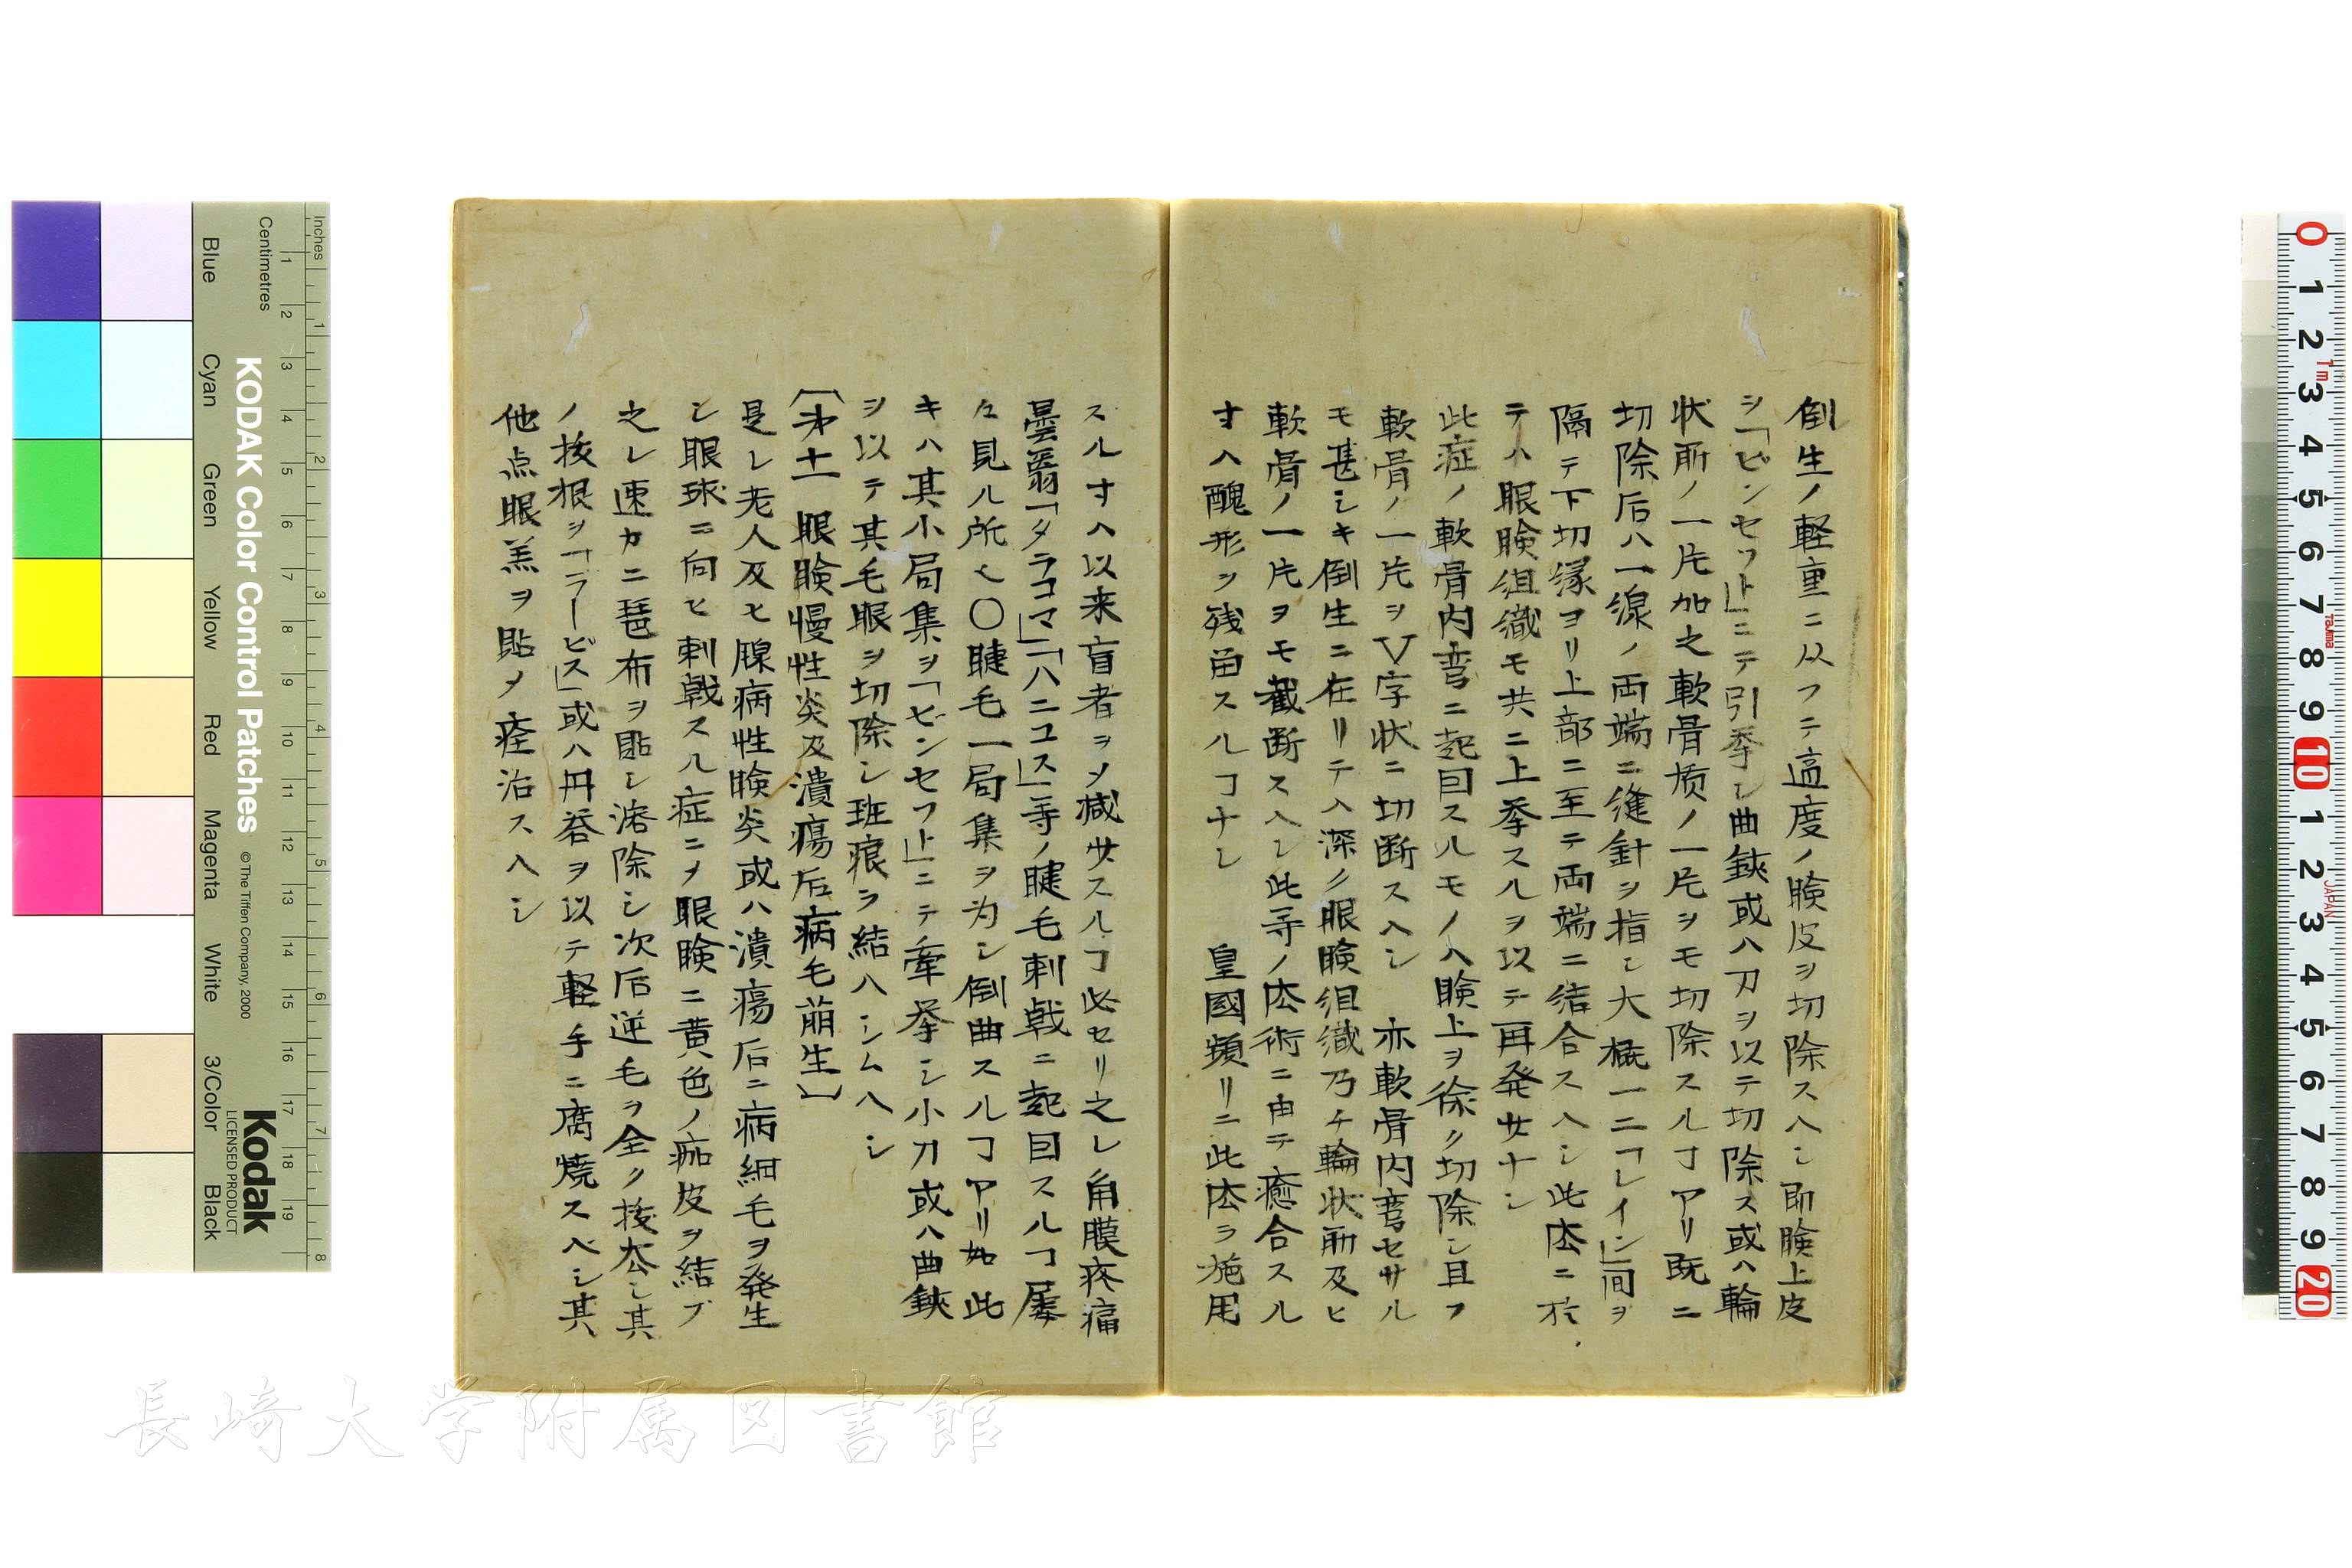 倒生ノ軽重ニ从フテ適度ノ瞼皮ヲ切除スヘシ即瞼上皮
ヲ「ピンセット」ニテ引拳シ曲鋏或ハ刀ヲ以テ切除ス或ハ輪
状筋ノ一片加之軟骨質ノ一片ヲモ切除スルヿアリ既ニ
切除后ハ一線ノ両端ニ縫針ヲ指シ大概一二「レイン」間ヲ
隔テ下切縁ヨリ上部ニ至テ両端ニ結合スヘシ此法ニ於
テハ眼瞼組織モ共ニ上拳スルヲ以テ再発サナシ
此症ノ軟骨内弯ニ起因スルモノハ瞼上ヲ徐々切除シ且フ
軟骨ノ一片ヲV字状ニ切断スヘシ 亦軟骨内弯セサル
モ甚シキ倒生ニ在リテハ深ク眼瞼組織乃チ輪状筋及ヒ
軟骨ノ一片ヲモ截断スヘシ此等ノ法術ニ由テ癒合スル
寸ハ醜形ヲ残畄スルヿナシ 皇國頻リニ此法ヲ施用
スル寸ハ以来盲者ヲメ減サスルヿ必セリ之レ角膜疼痛
曇翳「タラコマ」「ハニユス」等ノ睫毛刺戟ニ起因スルヿ屡
々見ル所也〇睫毛一局集ヲ为シ倒曲スルヿアリ如此
キハ其小局集ヲ「ピンセット」ニテ牽拳シ小刀或ハ曲鋏
ヲ以テ其毛眼ヲ切除シ斑痕ヲ結ハシムヘシ
〔第十一 眼瞼慢性炎及潰瘍后病毛萠生〕
是レ老人及ヒ腺病性瞼炎或ハ潰瘍后ニ病細毛ヲ発生
シ眼球ニ向ヒ刺戟スル症ニメ眼瞼ニ黄色ノ痂皮ヲ結ブ
之レ速カニ琶布ヲ貼シ溶除シ次后逆毛ヲ全ク抜去シ其
ノ抜根ヲ「ラービス」或ハ丹礬ヲ以テ軽手ニ腐焼スベシ其
他点眼羔ヲ貼メ痊治スヘシ
長崎大学附属図書館
KODAK Color Control Patches
© The Tiffen Company, 2000
Kodak
LICENSED PRODUCT
Inches
Centimetres
Blue
Cyan
Green
Yellow
Red
Magenta
White
3/Color
Black